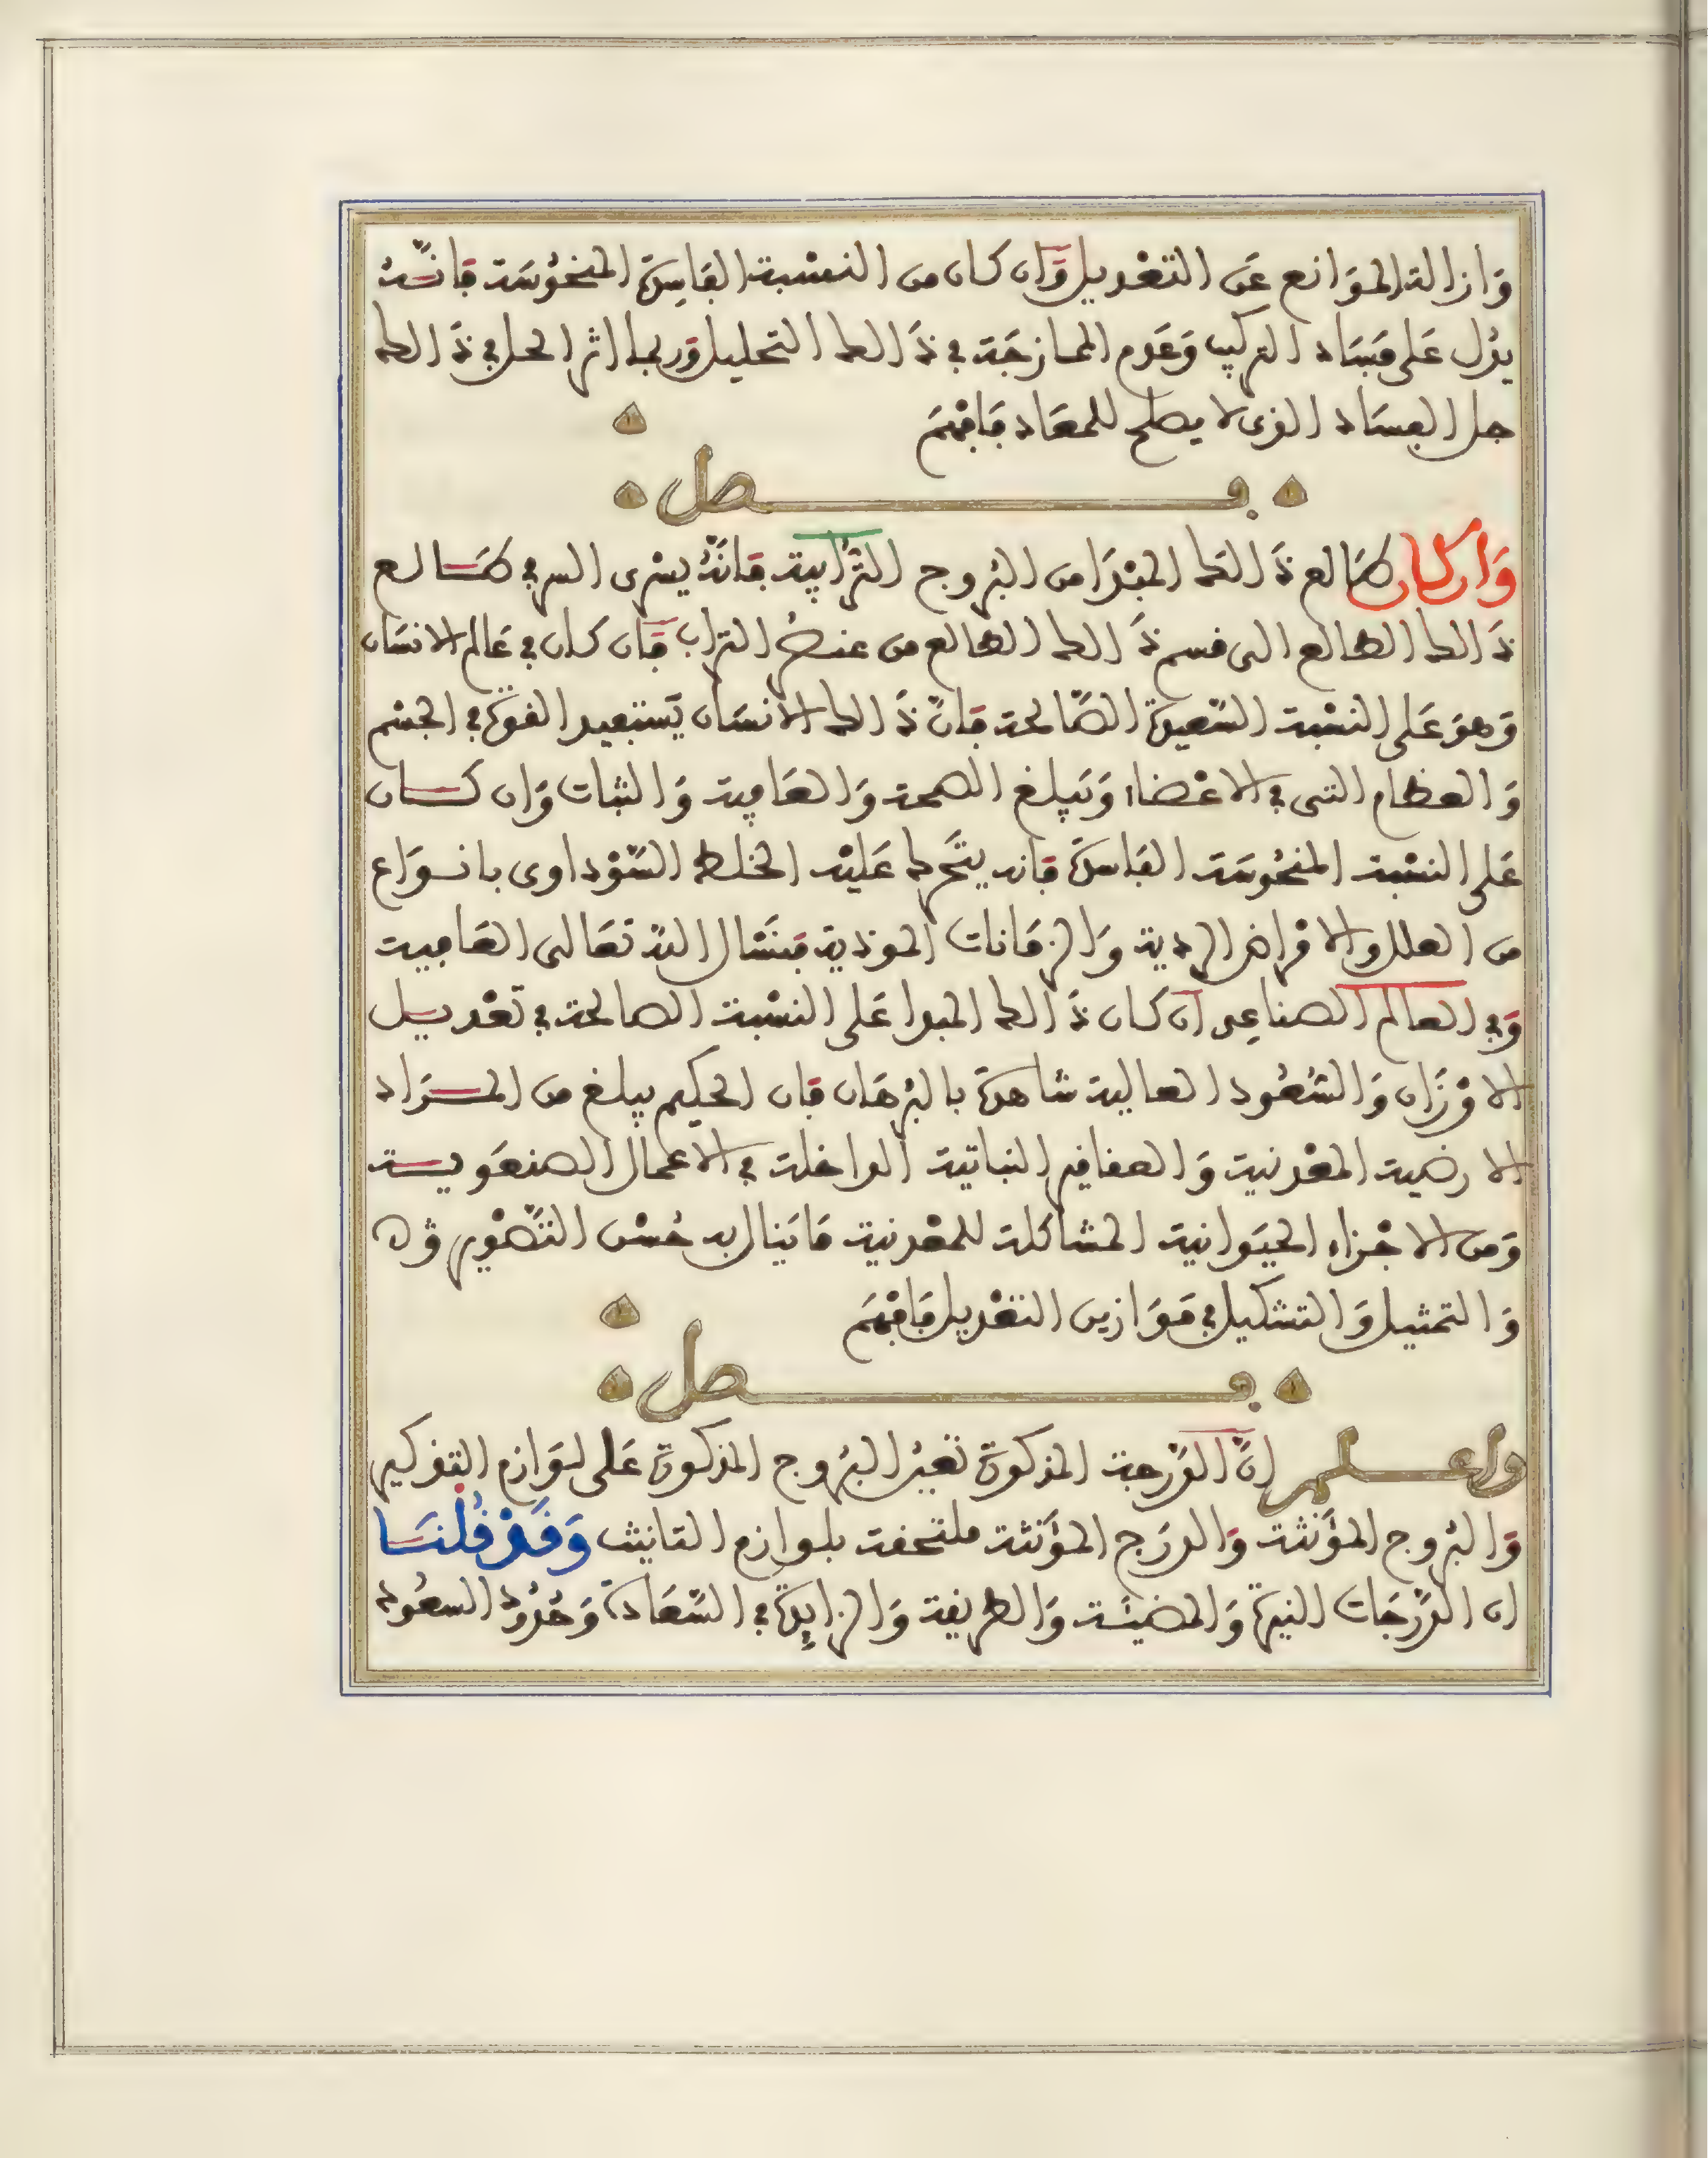 وَازالة الموَانع عَن التعْديل وَان كان من النسْبة الفَاسِدَة المنحُوسَة فَانّهُ
يدُل عَلى فسَاد التركيب وَعَدم الممازجَة في ذَالك التحليل وَربما اثر الحل في ذَالك
حل الفسَاد الذى لا يصلح للمعَاد فَافْهمَ
فصل
وَان كان طَالع ذَالك المبْدَا من البُروج التُّرَابية فانَّهُ يسْرى السر في طَالع
ذَالك الطالع الى قسم ذَالك الطالع من عنصُر التراب فَان كان في عَالم الانسَان
وَهوَ عَلى النسْبة السَّعيدة الصَّالحة فانَّ ذَالك الانسَان يَستفيد القوة في الجسْم
وَالعظام التى في الاعْضاء وَيَبلغ الصحة وَالعَافية وَالثبات وَان كان
عَلى النسْبة المنحُوسَة الفَاسدَة فانه يتَحرك عَليْه الخلط السَّوْداوى بانوَاع
من العلل والامْراض الردية وَالزمَانات الموذية فنسَال اللهَ تعَالى العَافية
وَفي العالم الصناعِى ان كان ذَالك المبدا عَلى النسْبة الصالحة في تعْديل
الاوْزَان وَالسُّعُود العالية شاهدة بالبُرهَان فان الحكيم يبلغ من المرَاد
الارضية المعْدنية وَالعقاقير النباتية الداخلة في الاعمال الصنعَوية
وَمن الاجْزاء الحيَوانية المشاكلة للمعْدنية مَا ينال به حُسْن التَّصْوير
وَالتمثيل وَالتشكيل في مَوَازين التعْديل فَافْهمَ
فصل
واعلم انَّ الدَّرجة المذكورة تعبُر البُروج المذكورة عَلى لوَازم التذكير
وَالبُروج المؤَنثة وَالدرَج المؤنثة ملتحفة بلوازم التانيث وَقَدْ قُلنَا
ان الدَّرَجَات النيرة وَالمضيئَة وَالطريفة وَالزايِدة في السَّعَادة وَحُدُود السعُود